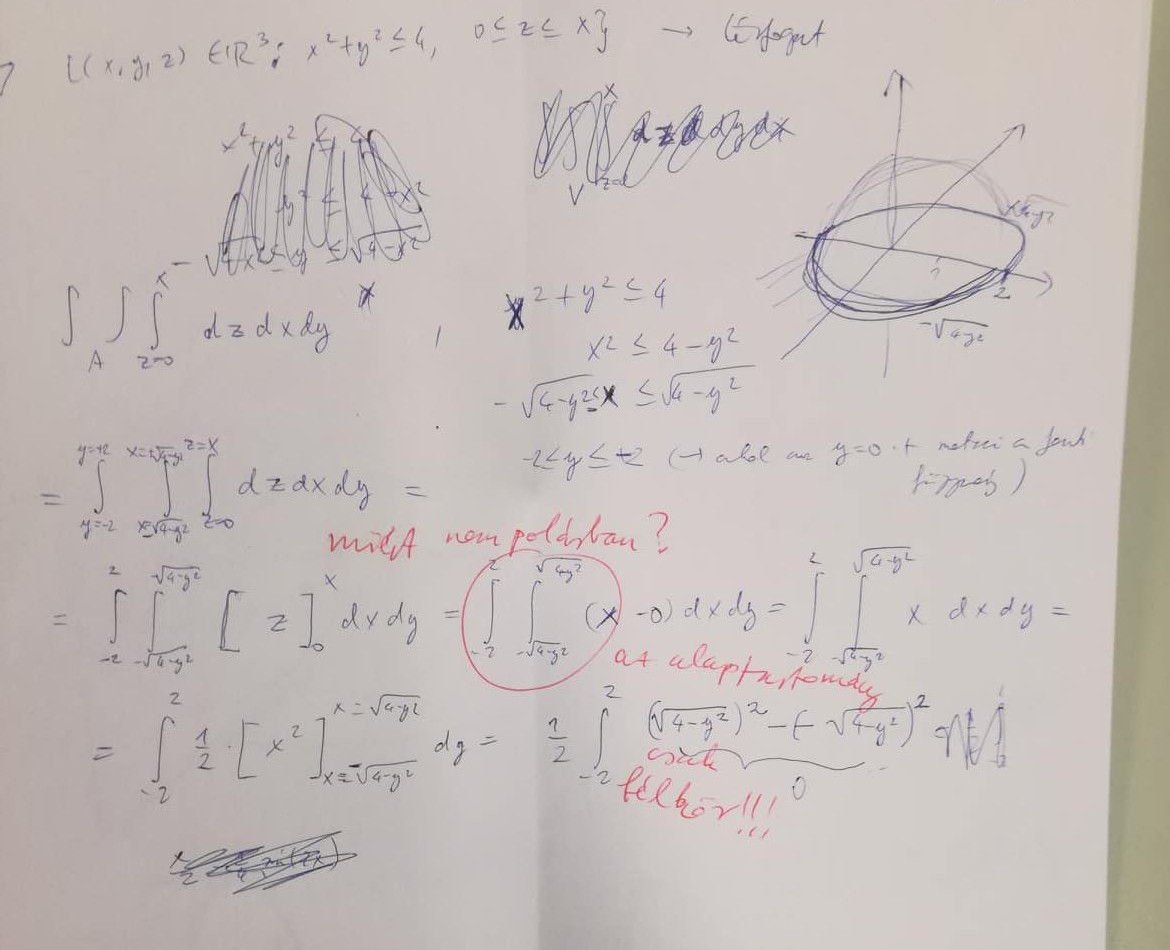 {(x,y,z) ∈ℝ³: x²+y² ≤ 4, 0 ≤ z ≤ x} → térfogat
∫∫_A ∫_{z=0}^{x} dz dx dy
x²+y² ≤ 4
x² ≤ 4-y²
-√(4-y²) ≤ x ≤ √(4-y²)
√(4-y²)
2
-√(4-y²)
-2 ≤ y ≤ +2 (→ ahol az y=0 -t metszi a fenti függvény)
= ∫_{y=-2}^{y=+2} ∫_{x=-√(4-y²)}^{x=+√(4-y²)} ∫_{z=0}^{z=x} dz dx dy =
miért nem polárban?
= ∫_{-2}^{2} ∫_{-√(4-y²)}^{√(4-y²)} [z]_0^x dx dy = ∫_{-2}^{2} ∫_{-√(4-y²)}^{√(4-y²)} (x-0) dx dy = ∫_{-2}^{2} ∫_{-√(4-y²)}^{√(4-y²)} x dx dy =
az alaptartomány
= ∫_{-2}^{2} 1/2 · [x²]_{x=-√(4-y²)}^{x=√(4-y²)} dy = 1/2 ∫_{-2}^{2} (√(4-y²))² - (-√(4-y²))²
csak
0
félkör!!!